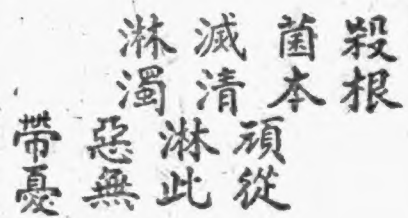 殺菌滅淋
根本清濁
頑淋惡帶
從此無憂